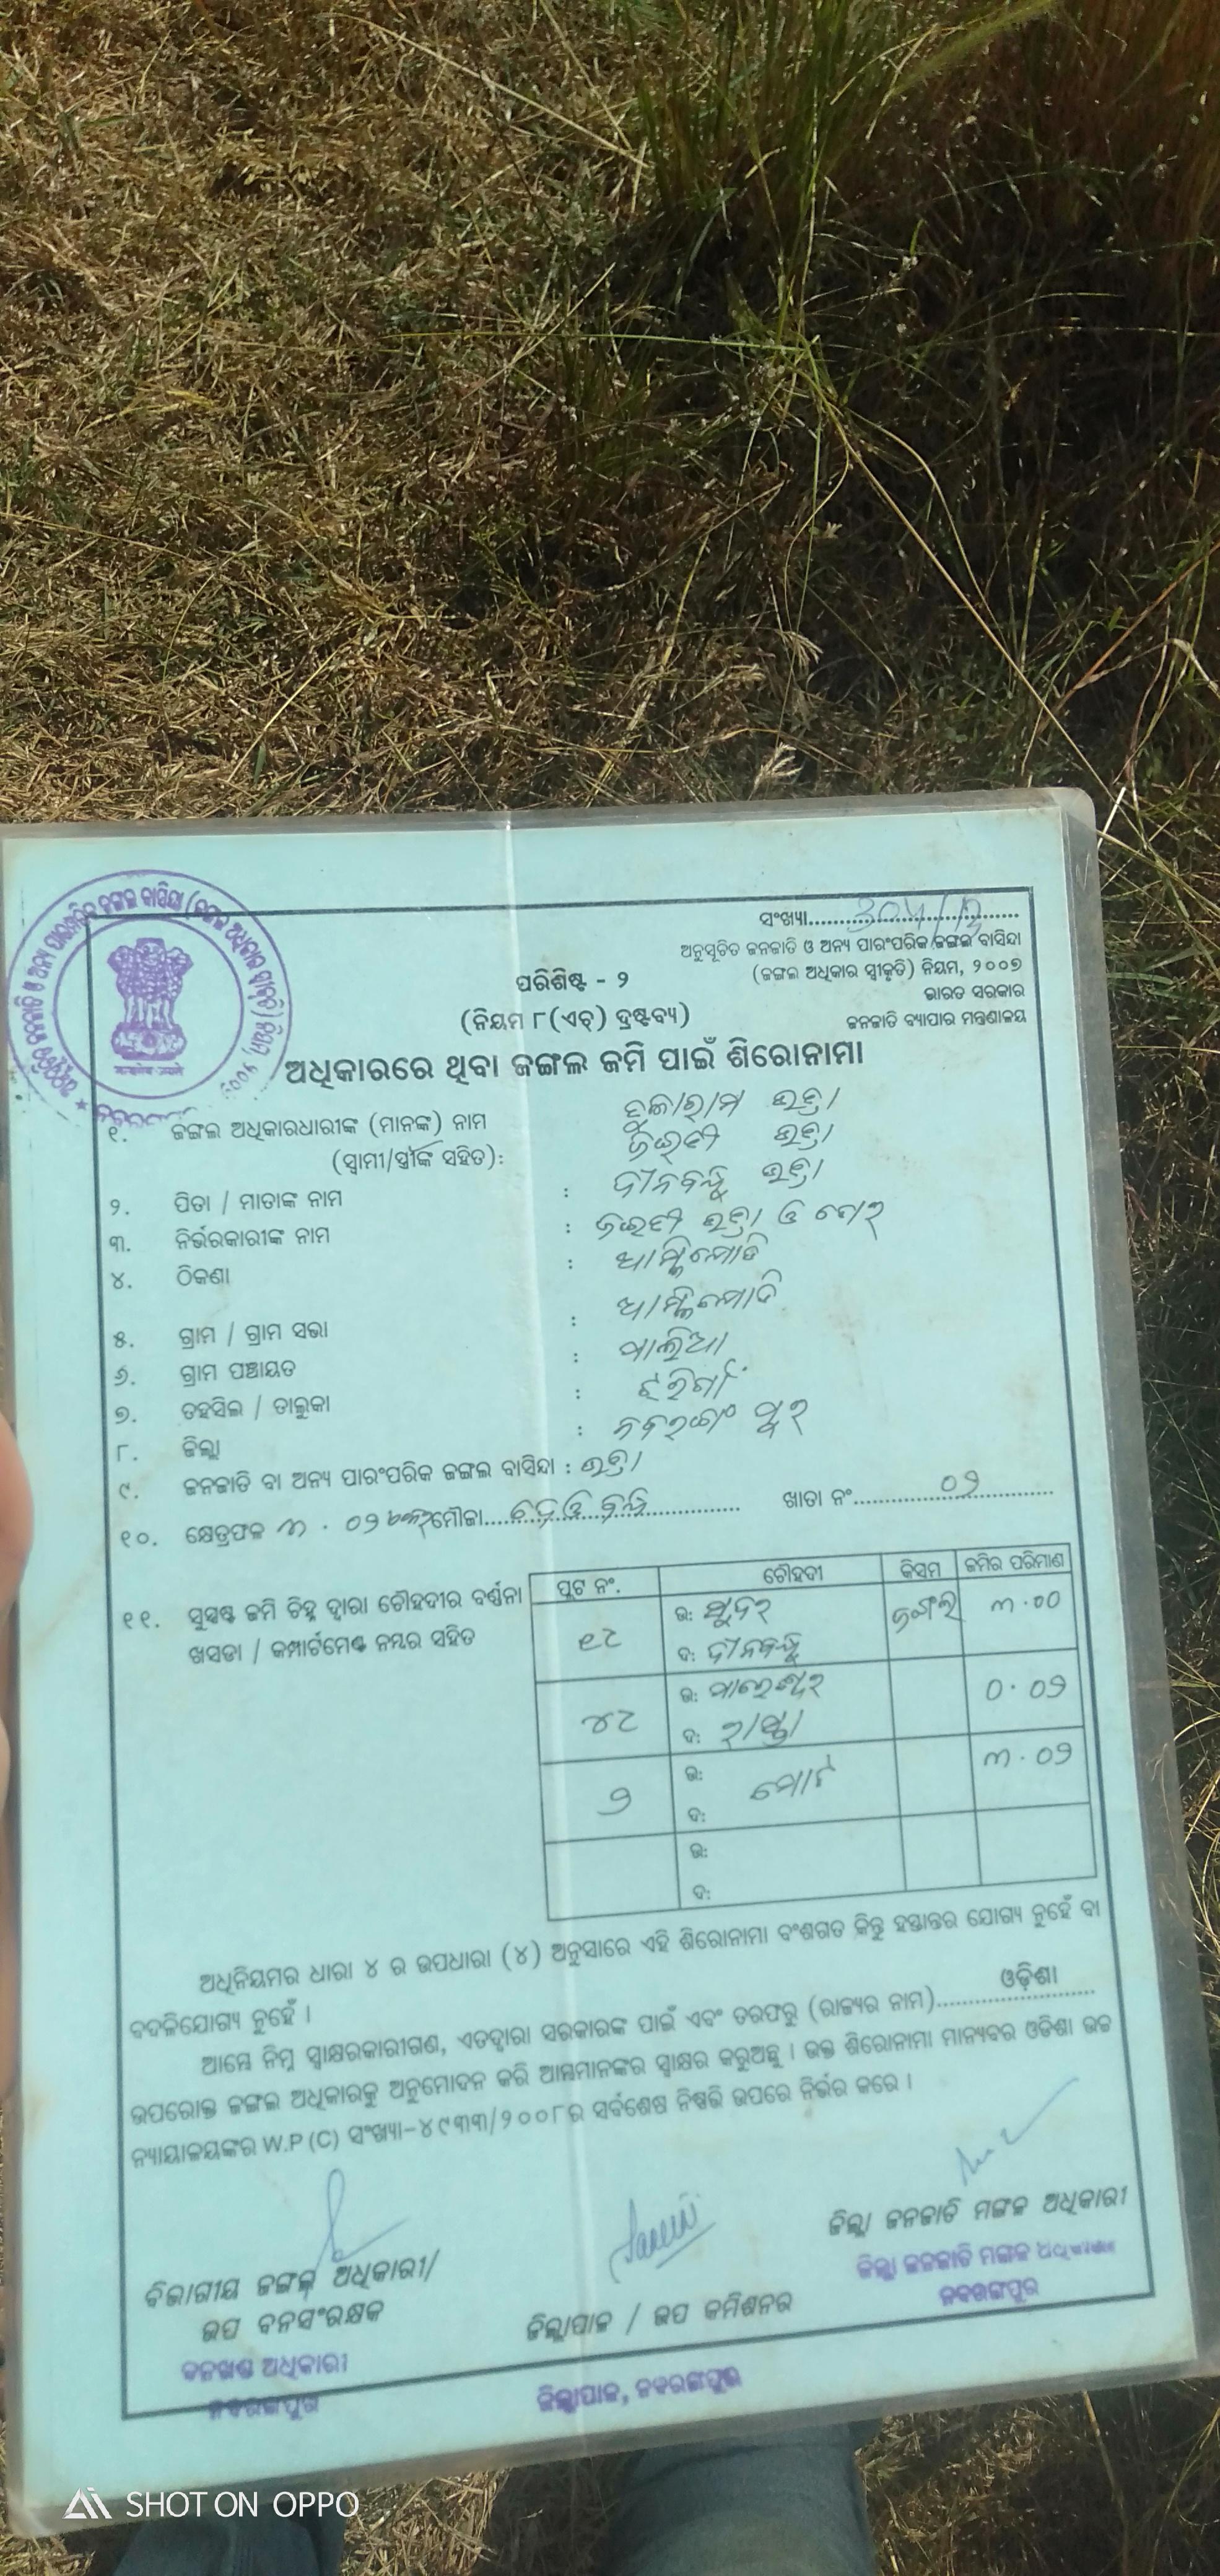 ସଂଖ୍ୟା
ଅନୁସୂଚିତ ଜନଜାତି ଓ ଅନ୍ୟ ପାରଂପରିକ ଜଙ୍ଗଲ ବାସିନ୍ଦା
(ଜଙ୍ଗଲ ଅଧିକାର ସ୍ୱୀକୃତି) ନିୟମ, ୨୦୦୭
ଭାରତ ସରକାର
ଜନଜାତି ବ୍ୟାପାର ମନ୍ତ୍ରଣାଳୟ
ପରିଶିଷ୍ଟ - ୨
(ନିୟମ ୮(ଏଚ୍) ଦ୍ରଷ୍ଟବ୍ୟ)
ଅଧିକାରରେ ଥିବା ଜଙ୍ଗଲ ଜମି ପାଇଁ ଶିରୋନାମା
୧. ଜଙ୍ଗଲ ଅଧିକାରଧାରୀଙ୍କ (ମାନଙ୍କ) ନାମ
(ସ୍ୱାମୀ/ସ୍ତ୍ରୀଙ୍କ ସହିତ):
୨. ପିତା / ମାତାଙ୍କ ନାମ : ଦୀନବନ୍ଧୁ
୩. ନିର୍ଭରକାରୀଙ୍କ ନାମ :
୪. ଠିକଣା :
୫. ଗ୍ରାମ / ଗ୍ରାମ ସଭା :
୬. ଗ୍ରାମ ପଞ୍ଚାୟତ :
୭. ତହସିଲ / ତାଲୁକା : ଝରିଗାଁ
୮. ଜିଲ୍ଲା : ନବରଙ୍ଗପୁର
୯. ଜନଜାତି ବା ଅନ୍ୟ ପାରଂପରିକ ଜଙ୍ଗଲ ବାସିନ୍ଦା :
୧୦. କ୍ଷେତ୍ରଫଳ ୩.୦୨ ମୌଜା ଖାତା ନଂ ୦୨
୧୧. ସୁସ୍ପଷ୍ଟ ଜମି ଚିହ୍ନ ଦ୍ୱାରା ଚୌହଦୀର ବର୍ଣ୍ଣନା
ଖସଡା / କମ୍ପାର୍ଟମେଣ୍ଟ ନମ୍ବର ସହିତ
ପ୍ଲଟ ନଂ. ଚୌହଦୀ କିସମ ଜମିର ପରିମାଣ
ଉ: ଜଙ୍ଗଲ ୩.୦୦
ଦ: ଦୀନବନ୍ଧୁ
ଉ: ୦.୦୨
ଦ: ରାସ୍ତା
୨ ଉ: ମୋଟ ୩.୦୨
ଦ:
ଉ:
ଦ:
ଅଧିନିୟମର ଧାରା ୪ ର ଉପଧାରା (୪) ଅନୁସାରେ ଏହି ଶିରୋନାମା ବଂଶଗତ କିନ୍ତୁ ହସ୍ତାନ୍ତର ଯୋଗ୍ୟ ନୁହେଁ ବା
ବଦଳିଯୋଗ୍ୟ ନୁହେଁ ।
ଆମ୍ଭେ ନିମ୍ନ ସ୍ୱାକ୍ଷରକାରୀଗଣ, ଏତଦ୍ୱାରା ସରକାରଙ୍କ ପାଇଁ ଏବଂ ତରଫରୁ (ରାଜ୍ୟର ନାମ) ଓଡ଼ିଶା
ଉପରୋକ୍ତ ଜଙ୍ଗଲ ଅଧିକାରକୁ ଅନୁମୋଦନ କରି ଆମ୍ଭମାନଙ୍କର ସ୍ୱାକ୍ଷର କରୁଅଛୁ । ଉକ୍ତ ଶିରୋନାମା ମାନ୍ୟବର ଓଡିଶା ଉଚ୍ଚ
ନ୍ୟାୟାଳୟଙ୍କର W.P (C) ସଂଖ୍ୟା-୪୯୩୩/୨୦୦୮ର ସର୍ବଶେଷ ନିଷ୍ପତ୍ତି ଉପରେ ନିର୍ଭର କରେ ।
ଜିଲ୍ଲା ଜନଜାତି ମଙ୍ଗଳ ଅଧିକାରୀ
ଜିଲ୍ଲା ଜନଜାତି ମଙ୍ଗଳ ଅଧିକାରୀ
ନବରଙ୍ଗପୁର
ବିଭାଗୀୟ ଜଙ୍ଗଲ ଅଧିକାରୀ/
ଉପ ବନସଂରକ୍ଷକ
ଜିଲ୍ଲାପାଳ / ଉପ କମିଶନର
ବନଖଣ୍ଡ ଅଧିକାରୀ
ନବରଙ୍ଗପୁର
ଜିଲ୍ଲାପାଳ, ନବରଙ୍ଗପୁର
SHOT ON OPPO